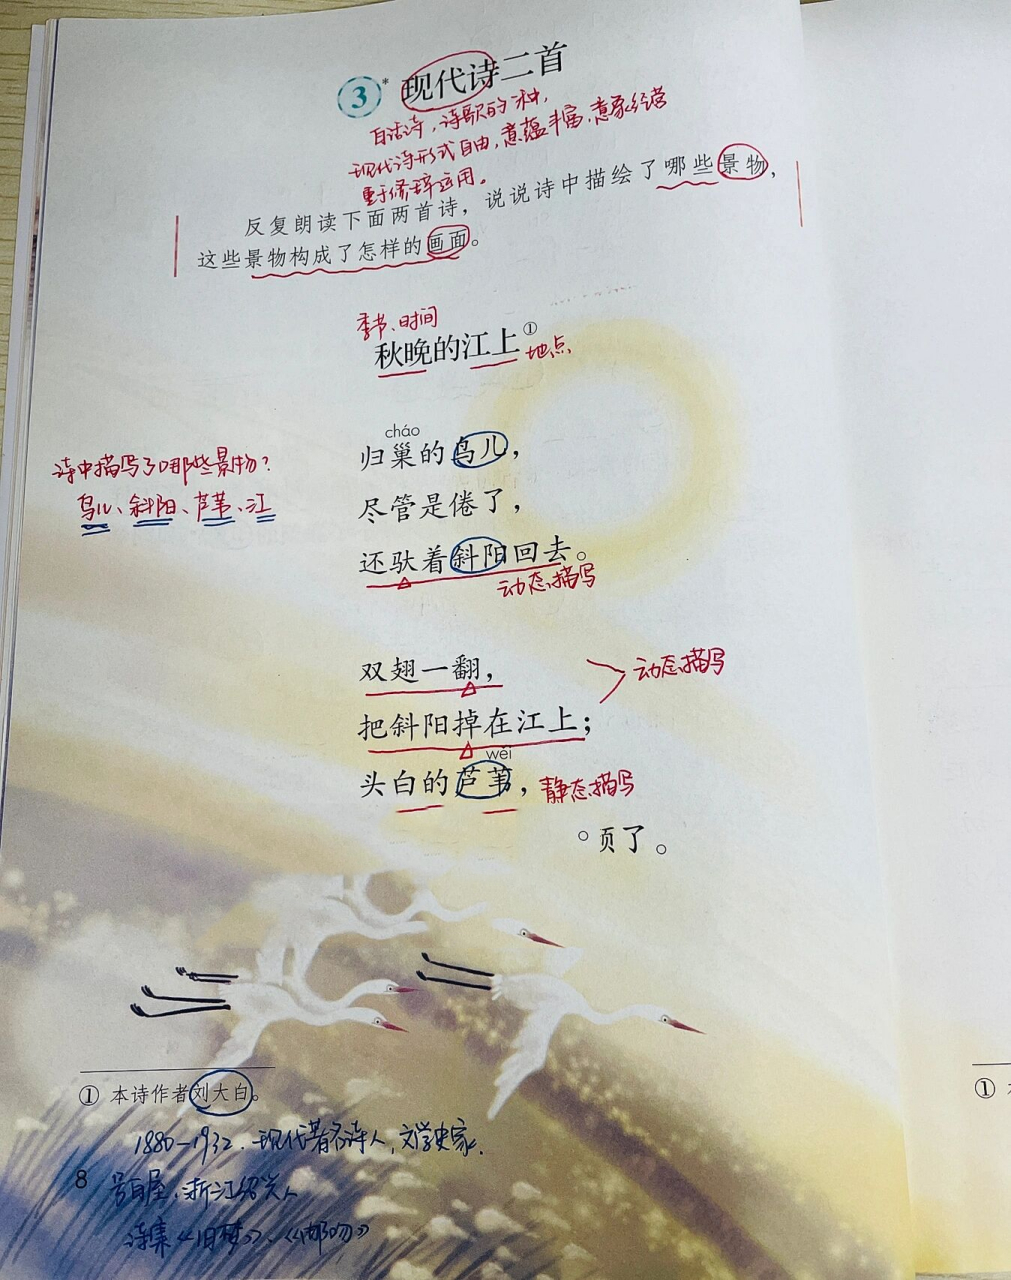 3* 现代诗二首
白话诗，诗歌的一种，
现代诗形式自由，意蕴丰富，意象经营
重于修辞运用。
反复朗读下面两首诗，说说诗中描绘了哪些景物，
这些景物构成了怎样的画面。
季节、时间
秋晚的江上①
地点
cháo
归巢的鸟儿，
尽管是倦了，
还驮着斜阳回去。
动态描写
诗中描写了哪些景物？
鸟儿、斜阳、芦苇、江
双翅一翻，
把斜阳掉在江上；
动态描写
wěi
头白的芦苇，
静态描写
页了。
① 本诗作者刘大白。
1880—1932．现代著名诗人，文学史家．
8
号白屋，浙江绍兴人
诗集《旧梦》、《邮吻》
①